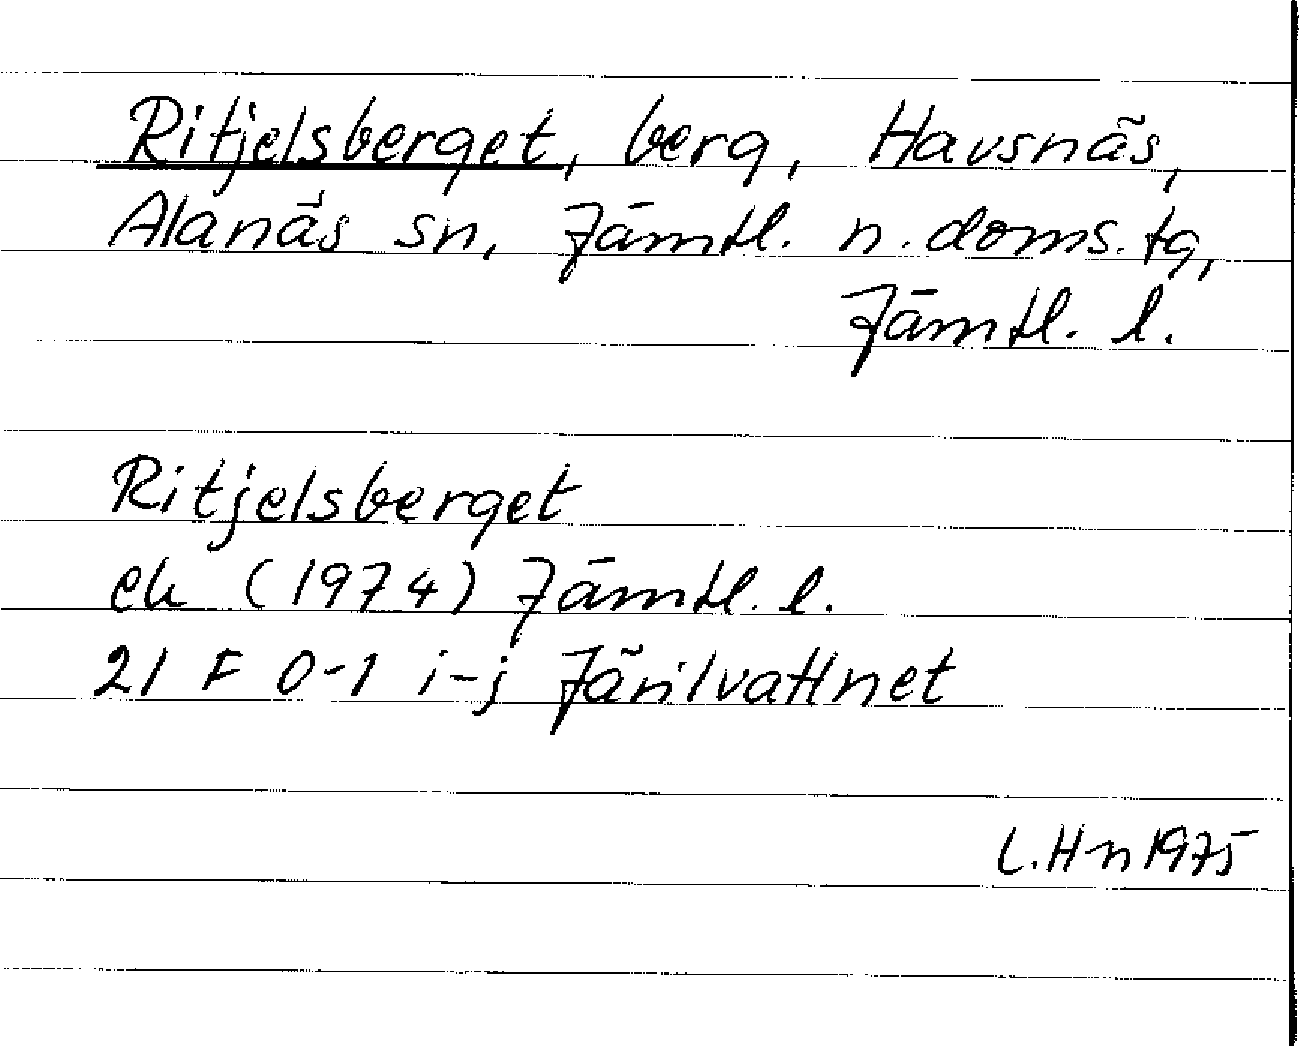 Ritjelsberget, berg, Havsnäs,
Alanäs sn, Jämtl. n. doms. tg,
Jämtl. l.
Ritjelsberget
ek (1974) Jämtl. l.
21 F 0-1 i-j Järilvattnet
L. Hn 1975